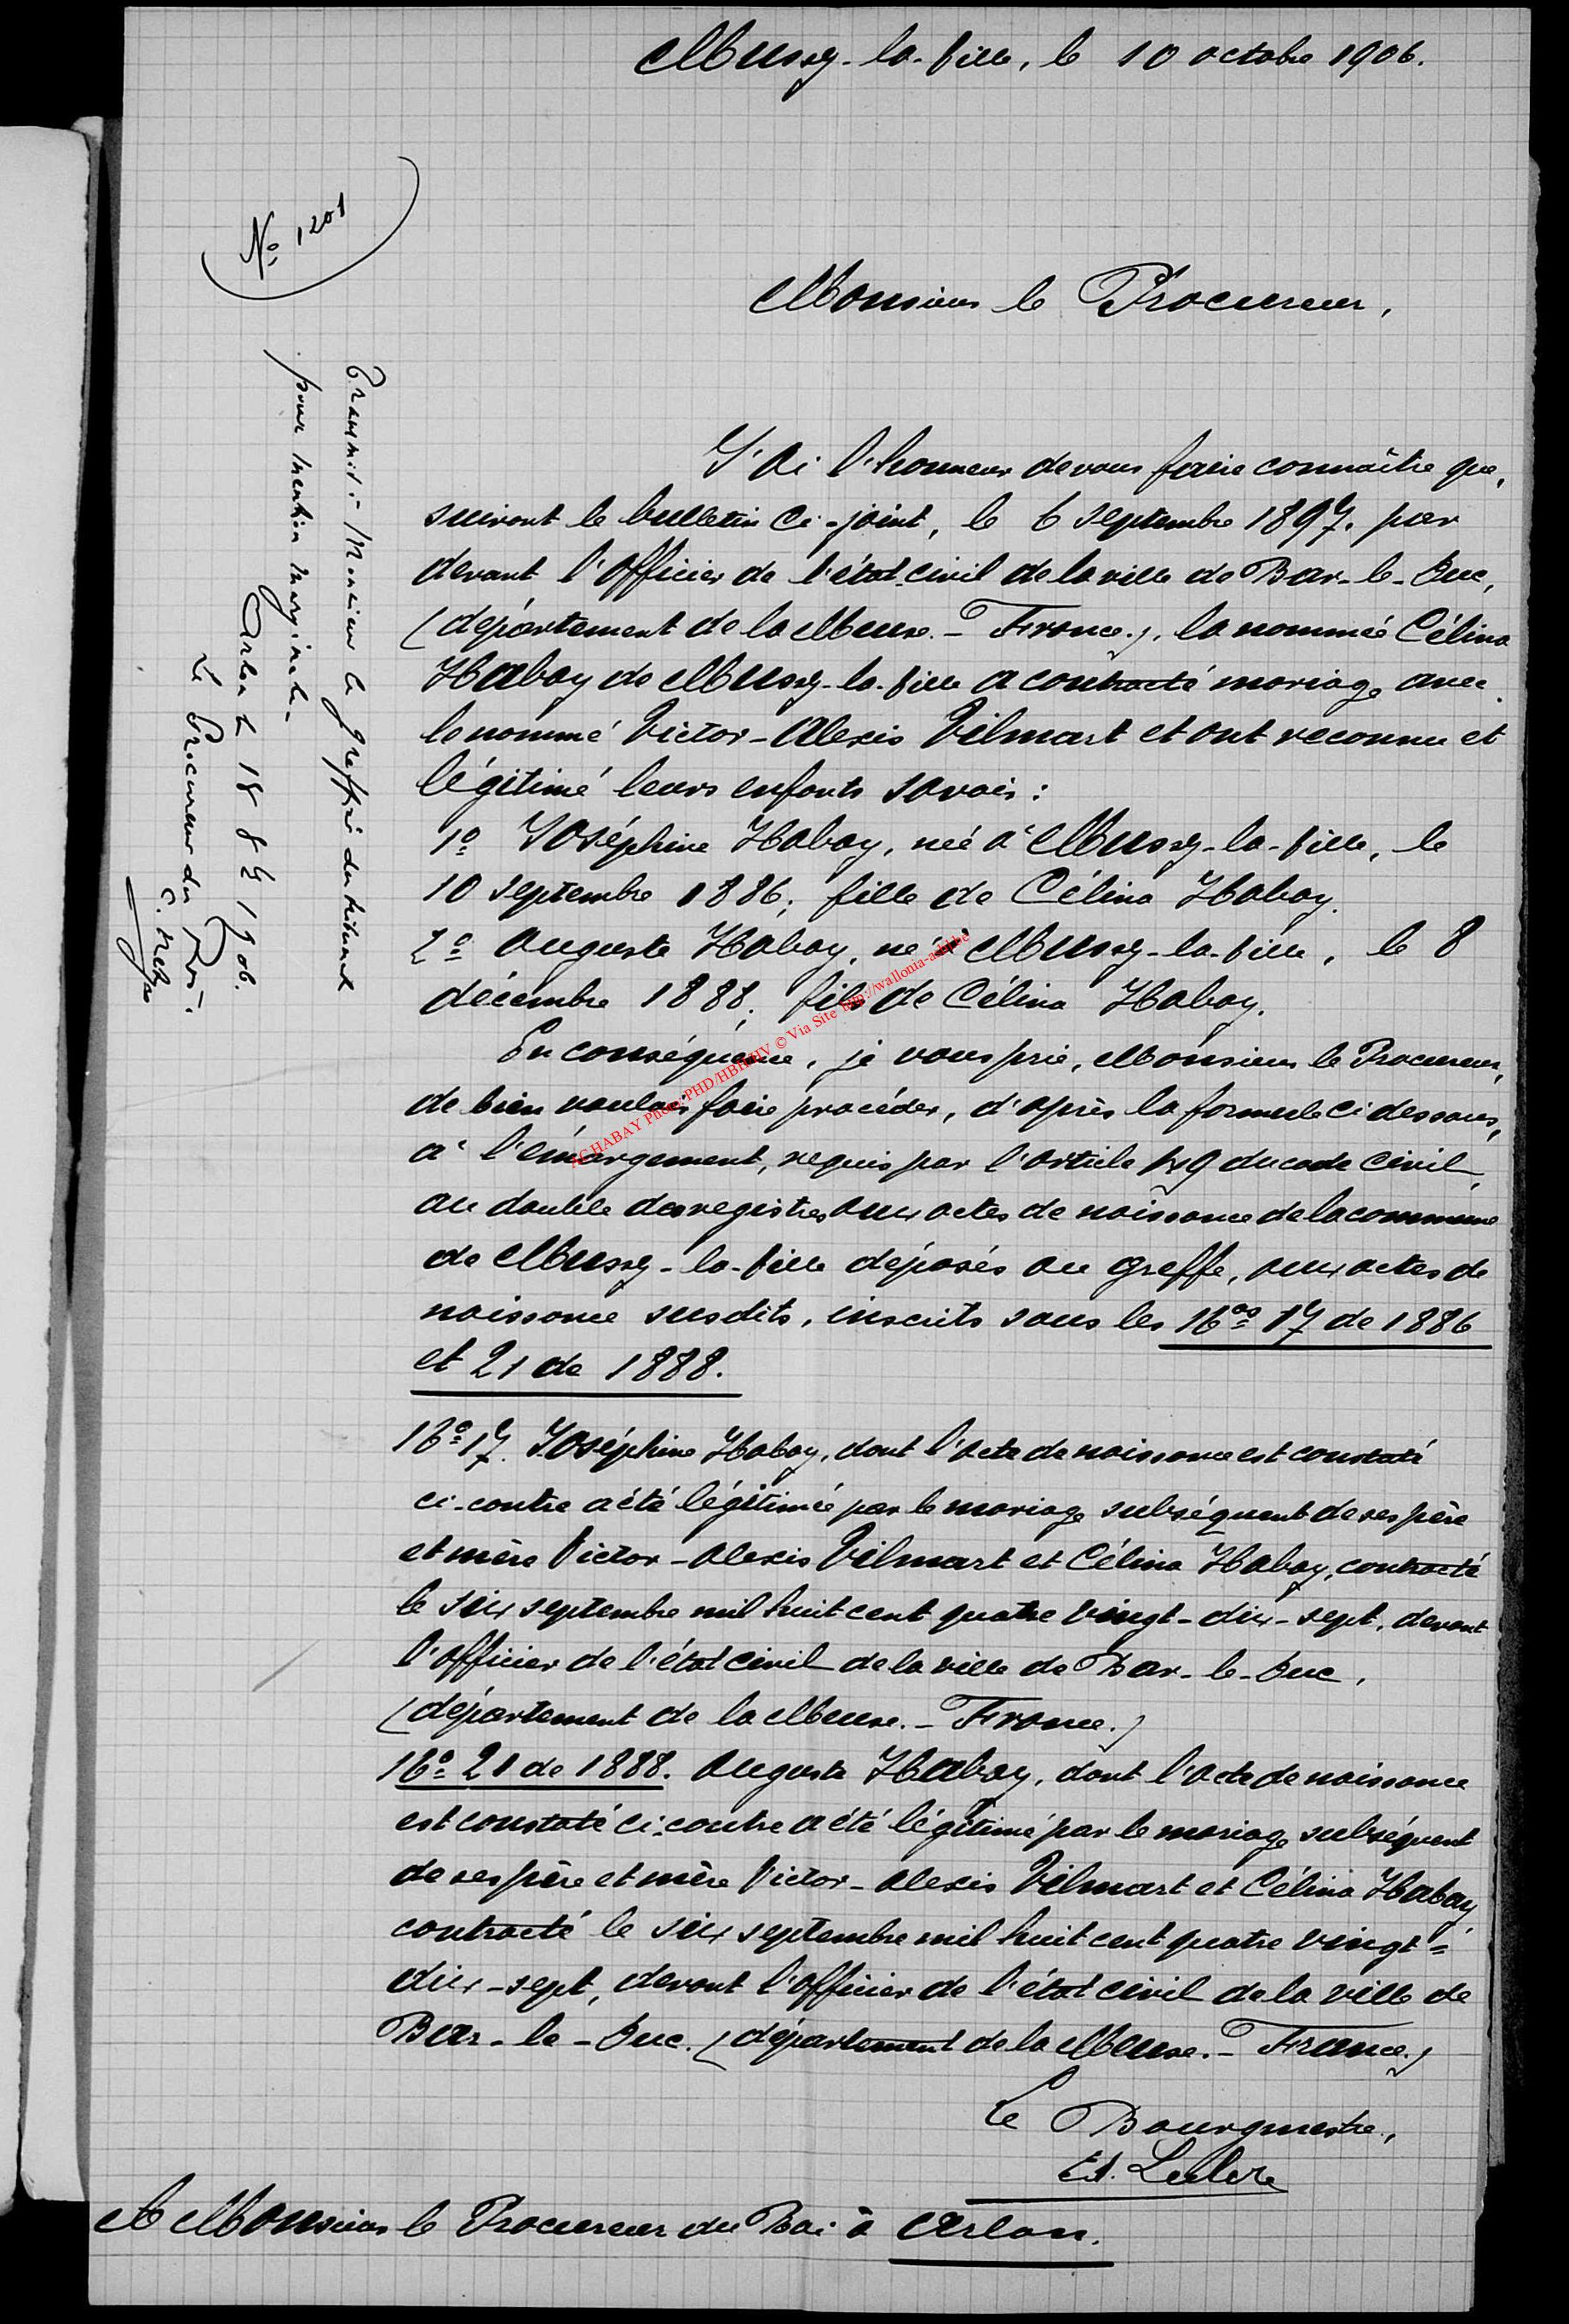 Mussy-la-Ville, le 10 octobre 1906.
No 1201
Monsieur le Procureur,
J'ai l'honneur de vous faire connaître que,
suivant le bulletin ci-joint, le 6 septembre 1897. par
devant l'officier de l'état civil de la ville de Bar-le-Duc,
(département de la Meuse.- France.), la nommée Célina
Habay de Mussy-la-Ville a contracté mariage avec
le nommé Victor-Alexis Vilmart et ont reconnu et
légitimé leurs enfants savoir :
1o Joséphine Habay, née à Mussy-la-Ville, le
10 septembre 1886; fille de Célina Habay.
2o Auguste Habay, né à Mussy-la-Ville, le 8
décembre 1888; fils de Célina Habay.
En conséquence, je vous prie, Monsieur le Procureur,
de bien vouloir faire procéder, d'après la formule ci dessous,
à l'émargement, requis par l'article 49 du code civil,
au double des registres aux actes de naissance de la commune
de Mussy-la-Ville déposés au greffe, aux actes de
naissance susdits, inscrits sous les Nos 17 de 1886
et 21 de 1888.
No 17. Joséphine Habay, dont l'acte de naissance est constaté
ci-contre a été légitimée par le mariage subséquent de ses père
et mère Victor-Alexis Vilmart et Célina Habay, contracté
le six septembre mil huit cent quatre vingt-dix-sept, devant
l'officier de l'état civil de la ville de Bar-le-Duc,
(département de la Meuse.- France.)
No 21 de 1888. Auguste Habay, dont l'acte de naissance
est constaté ci-contre a été légitimé par le mariage subséquent
de ses père et mère Victor-Alexis Vilmart et Célina Habay,
contracté le six septembre mil huit cent quatre vingt-
dix-sept, devant l'officier de l'état civil de la ville de
Bar-le-Duc. (département de la Meuse.- France.)
Le Bourgmestre,
A Monsieur le Procureur du Roi à Arlon.
Transmis à Monsieur le greffier du tribunal
pour mention marginale.
Arlon le 18 1906.
Le Procureur du Roi.
HABAY Photo: PHD/HBH © Via Site http://wallonia-asbl.be